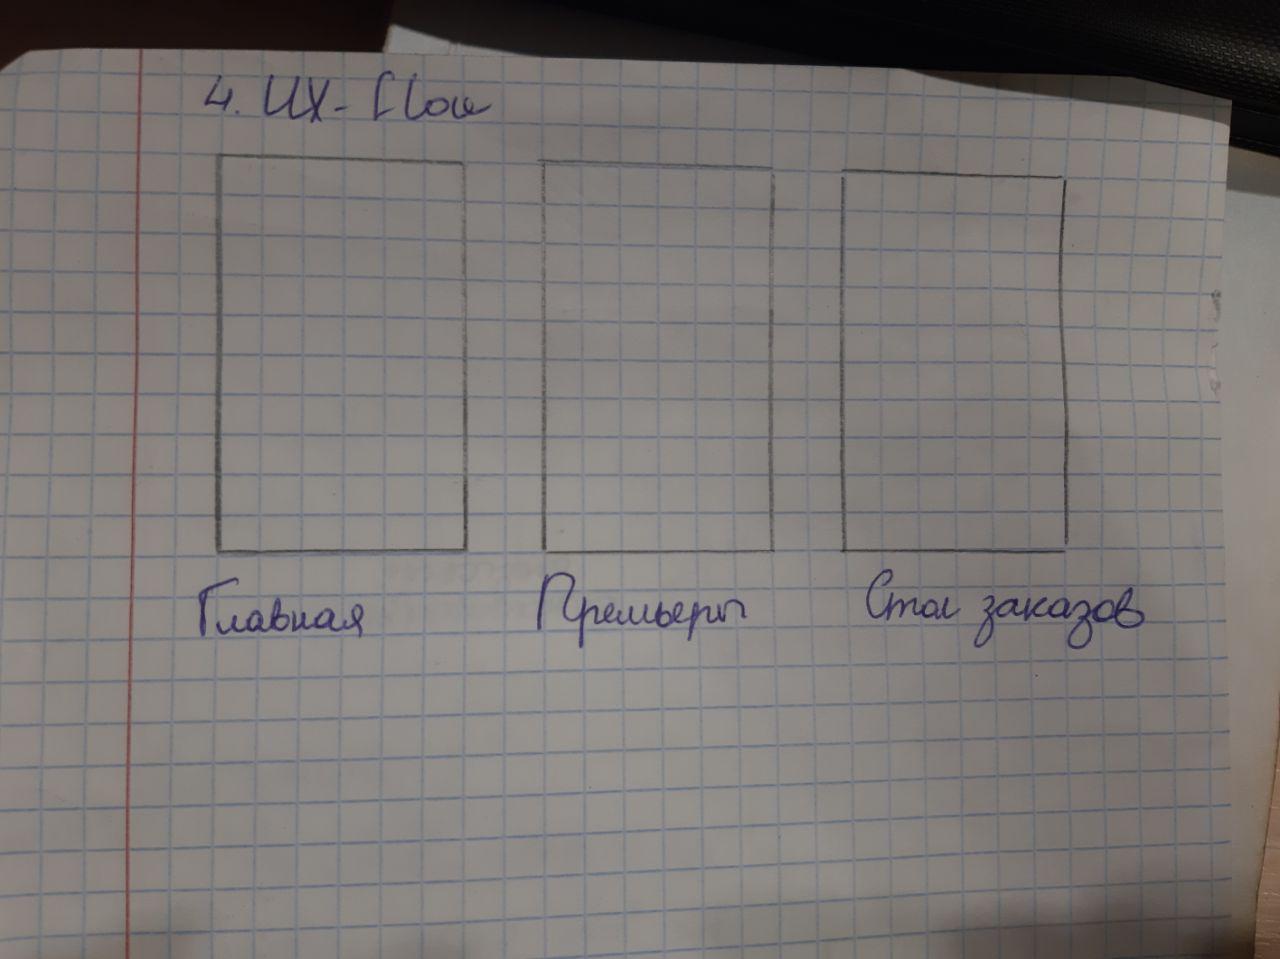 4. UX-flow
Главная
Премьеры
Стол заказов